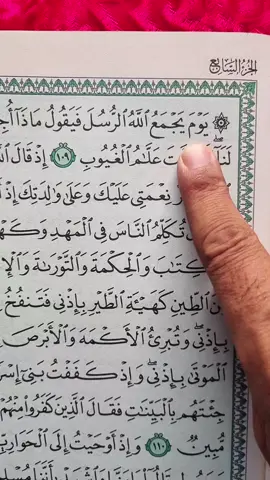 الجزء السابع
۞ يَوْمَ يَجْمَعُ ٱللَّهُ ٱلرُّسُلَ فَيَقُولُ مَاذَآ
عَلَّٰمُ ٱلْغُيُوبِ ١٠٩ إِذْ قَالَ
نِعْمَتِى عَلَيْكَ وَعَلَىٰ وَٰلِدَتِكَ إِذْ
تُكَلِّمُ ٱلنَّاسَ فِى ٱلْمَهْدِ
وَٱلْحِكْمَةَ وَٱلتَّوْرَىٰةَ
ٱلطِّينِ كَهَيْـَٔةِ ٱلطَّيْرِ بِإِذْنِى فَتَنفُخُ
بِإِذْنِى وَتُبْرِئُ ٱلْأَكْمَهَ وَٱلْأَبْرَصَ
ٱلْمَوْتَىٰ بِإِذْنِى وَإِذْ كَفَفْتُ بَنِىٓ
جِئْتَهُم بِٱلْبَيِّنَٰتِ فَقَالَ ٱلَّذِينَ كَفَرُوا۟ مِنْهُمْ
مُّبِينٌ ١١٠ وَإِذْ أَوْحَيْتُ إِلَى